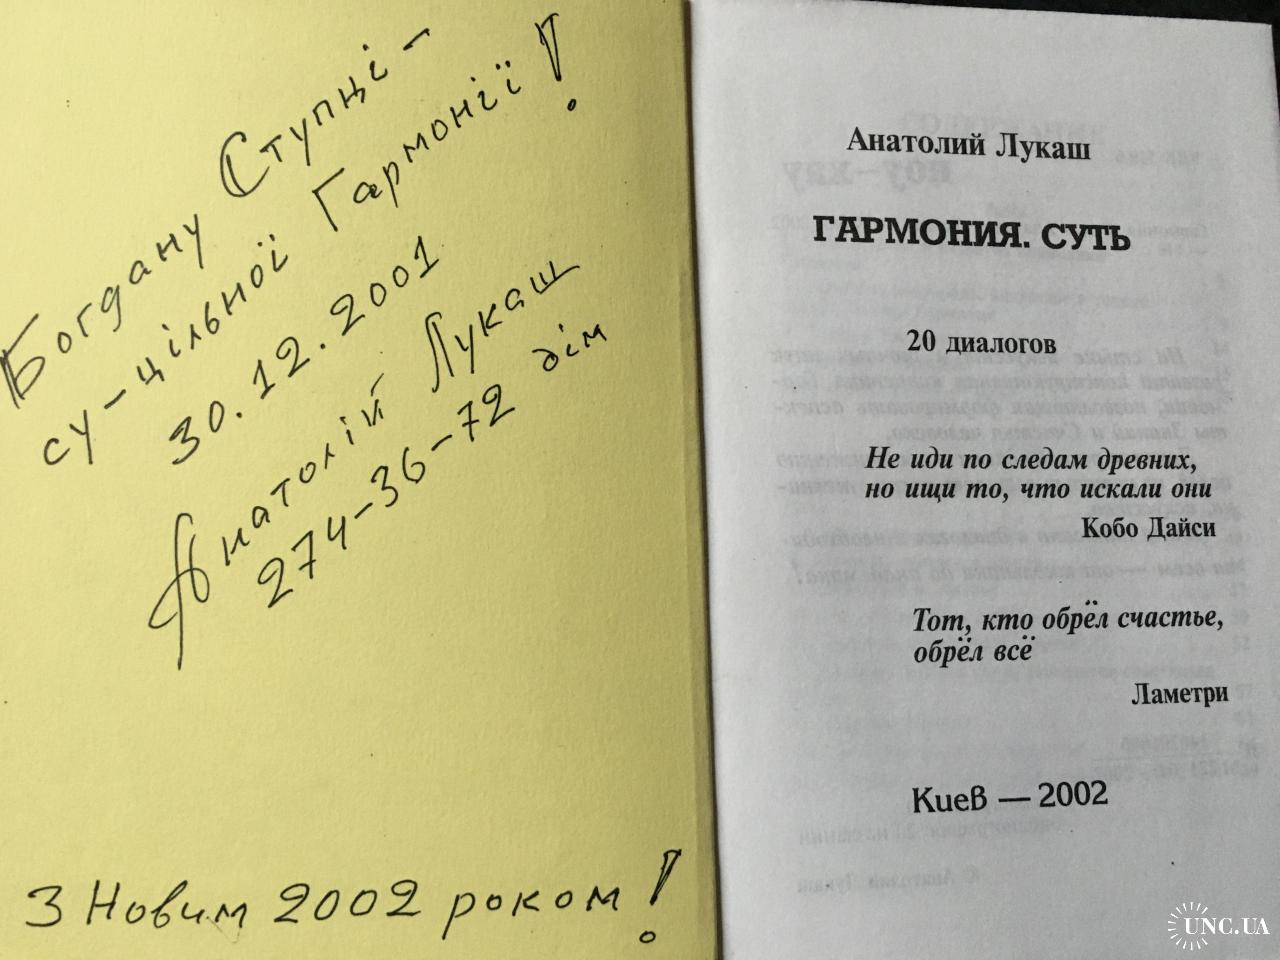 Богдану Ступці –
су-цільної Гармонії!
30.12.2001
Анатолій Лукаш
274-36-72 дім
З Новим 2002 роком!
Анатолий Лукаш
ГАРМОНИЯ. СУТЬ
20 диалогов
Не иди по следам древних,
но ищи то, что искали они
Кобо Дайси
Тот, кто обрёл счастье,
обрёл всё
Ламетри
Киев — 2002
UNC.UA